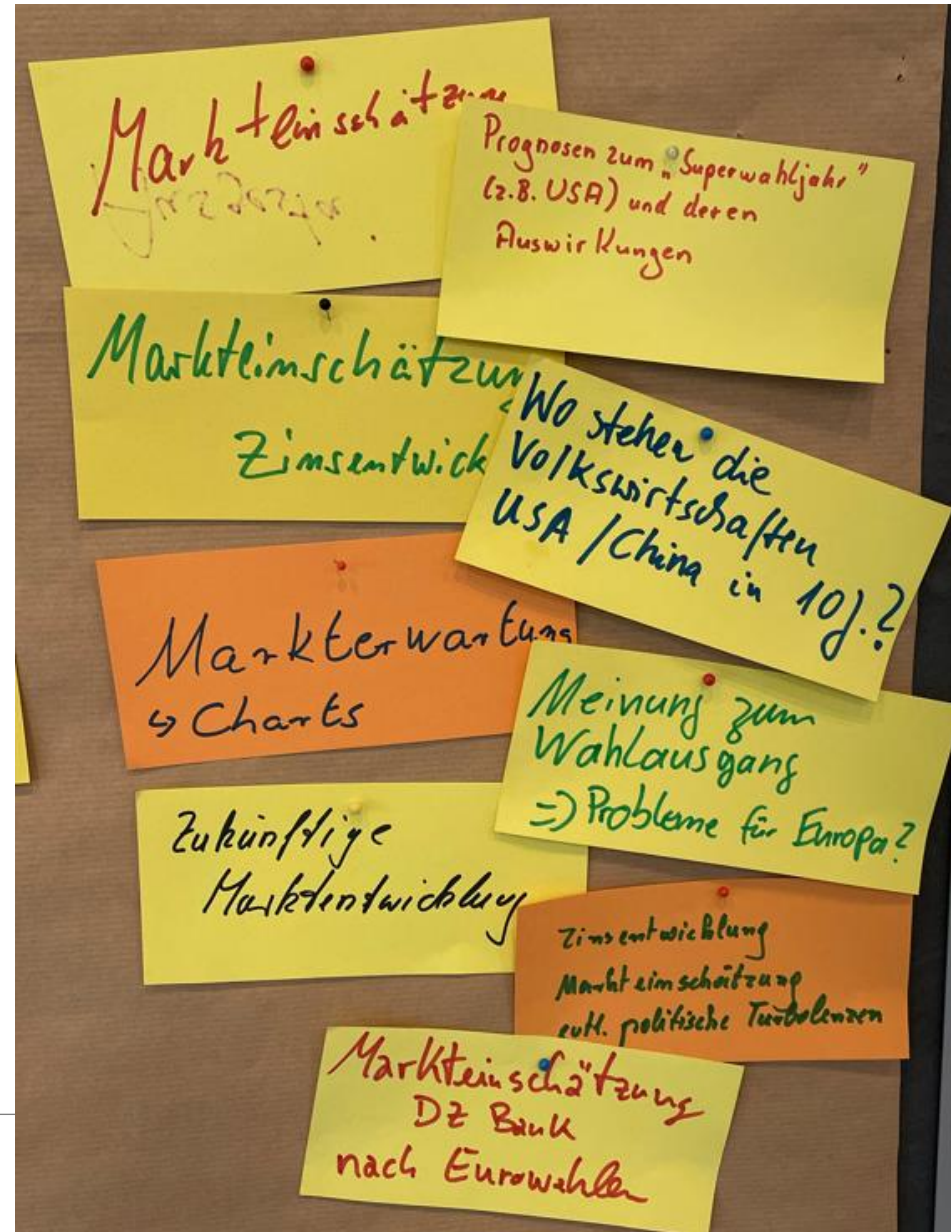 Markteinschätzung
Prognosen zum „Superwahljahr"
(z.B. USA) und deren
Auswirkungen
Markteinschätzung
Zinsentwick
Wo stehen die
Volkswirtschaften
USA / China in 10 J.?
Markterwartung
↳ Charts
Meinung zum
Wahlausgang
=> Probleme für Europa?
Zukünftige
Marktentwicklung
Zinsentwicklung
Markteinschätzung
evtl. politische Turbolenzen
Markteinschätzung
DZ Bank
nach Eurowahlen